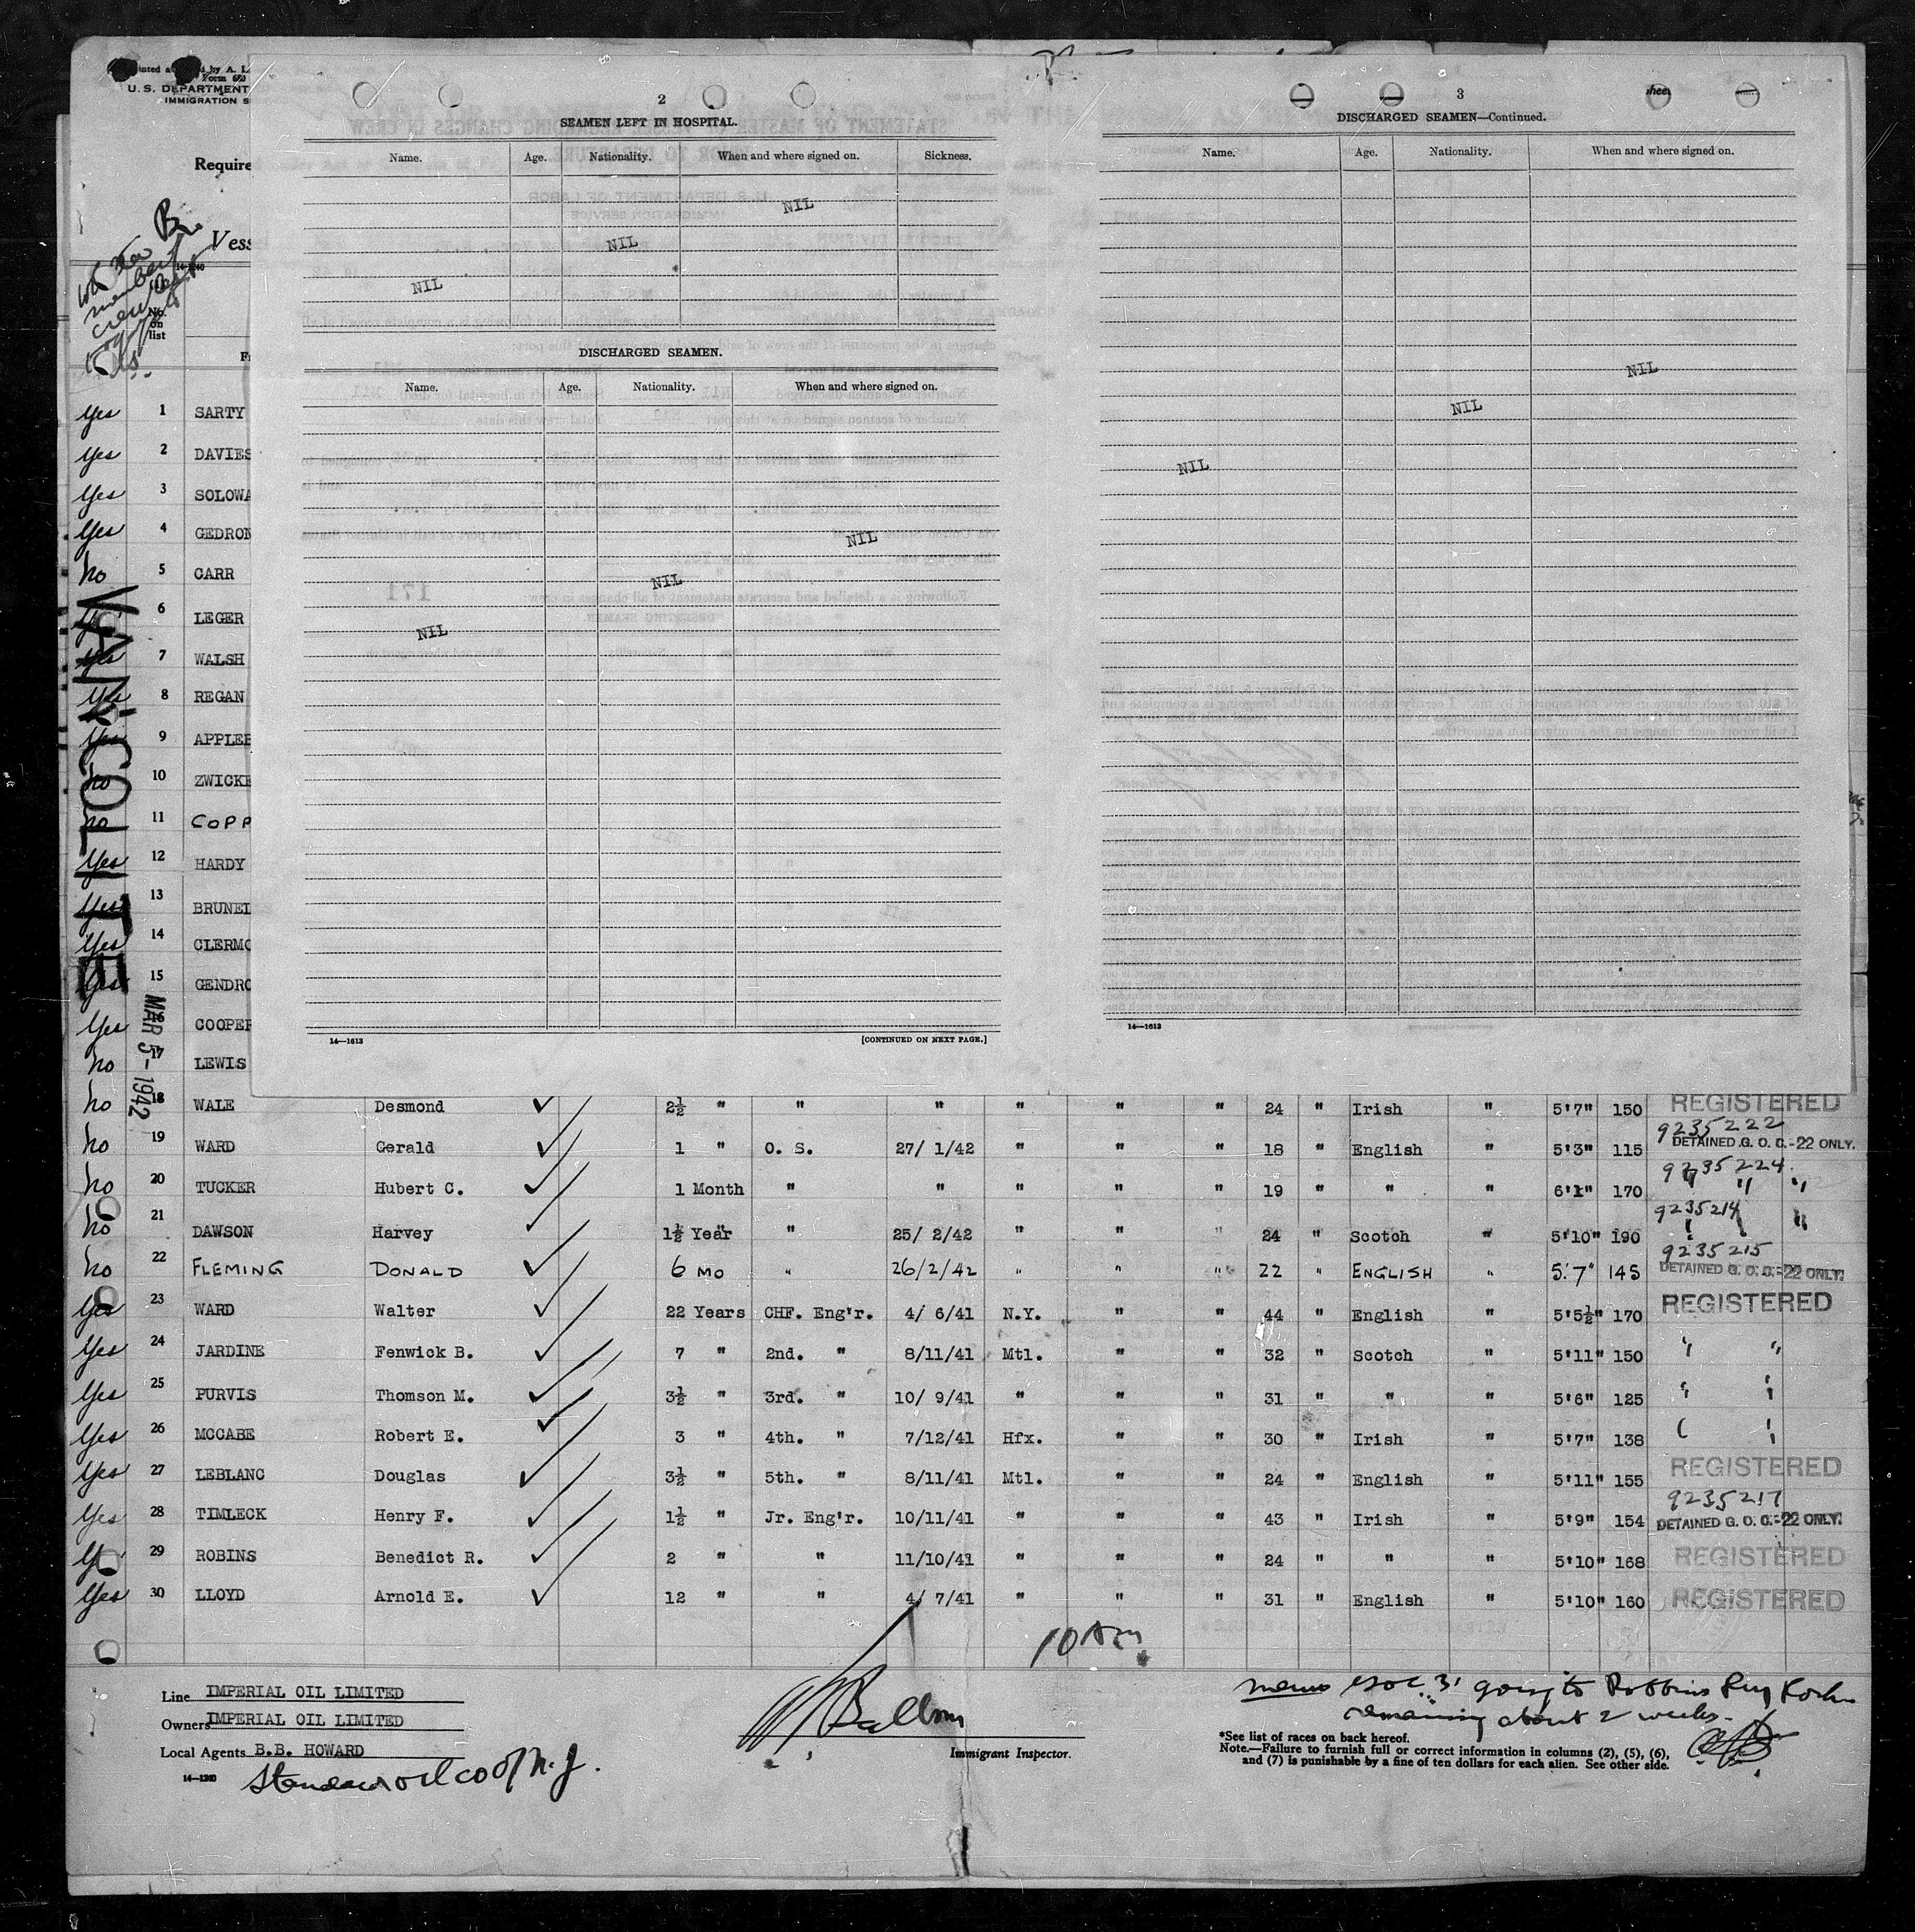 U.S. DEPARTMENT
IMMIGRATION S
Require
Vess
No. on list
2
SEAMEN LEFT IN HOSPITAL.
Name. Age. Nationality. When and where signed on. Sickness.
NIL
NIL
NIL
DISCHARGED SEAMEN.
Name. Age. Nationality. When and where signed on.
NIL
NIL
NIL
14—1613 [CONTINUED ON NEXT PAGE.]
3
DISCHARGED SEAMEN—Continued.
Name. Age. Nationality. When and where signed on.
NIL
NIL
NIL
14—1613
VANCOLITE
MAR 5 - 1942
Yes 1 SARTY
Yes 2 DAVIES
Yes 3 SOLOWA
Yes 4 GEDRON
no 5 CARR
6 LEGER
Yes 7 WALSH
Yes 8 REGAN
Yes 9 APPLEB
no 10 ZWICKE
no 11 COPP
Yes 12 HARDY
Yes 13 BRUNEL
Yes 14 CLERMO
Yes 15 GENDRO
Yes 16 COOPER
no 17 LEWIS
no 18 WALE Desmond 2½ " " " " " " 24 " Irish " 5'7" 150 REGISTERED
9235222
no 19 WARD Gerald 1 " O. S. 27/ 1/42 " " " 18 " English " 5'3" 115 DETAINED G. O. C.-22 ONLY.
9235224
no 20 TUCKER Hubert C. 1 Month " " " " " 19 " " " 6'1" 170 " " "
9235214
no 21 DAWSON Harvey 1½ Year " 25/ 2/42 " " " 24 " Scotch " 5'10" 190
9235215
no 22 FLEMING DONALD 6 MO " 26/2/42 " " " 22 " ENGLISH " 5'7" 145 DETAINED G. O. C.-22 ONLY.
Yes 23 WARD Walter 22 Years CHF. Eng'r. 4/ 6/41 N.Y. " " 44 " English " 5'5½" 170 REGISTERED
Yes 24 JARDINE Fenwick B. 7 " 2nd. " 8/11/41 Mtl. " " 32 " Scotch " 5'11" 150 " "
Yes 25 PURVIS Thomson M. 3½ " 3rd. " 10/ 9/41 " " " 31 " " " 5'6" 125 " "
Yes 26 MCCABE Robert E. 3 " 4th. " 7/12/41 Hfx. " " 30 " Irish " 5'7" 138
Yes 27 LEBLANC Douglas 3½ " 5th. " 8/11/41 Mtl. " " 24 " English " 5'11" 155 REGISTERED
9235217
Yes 28 TIMLECK Henry F. 1½ " Jr. Eng'r. 10/11/41 " " " 43 " Irish " 5'9" 154 DETAINED G. O. C.-22 ONLY.
29 ROBINS Benedict R. 2 " " 11/10/41 " " " 24 " " " 5'10" 168 REGISTERED
Yes 30 LLOYD Arnold E. 12 " " 4/ 7/41 " " " 31 " English " 5'10" 160 REGISTERED
10 Am
Line IMPERIAL OIL LIMITED
Owners IMPERIAL OIL LIMITED
Local Agents B.B. HOWARD
Standard oil co of N.J.
Immigrant Inspector.
going to Robbins
remaining about 2 weeks.
*See list of races on back hereof.
Note.—Failure to furnish full or correct information in columns (2), (5), (6),
and (7) is punishable by a fine of ten dollars for each alien. See other side.